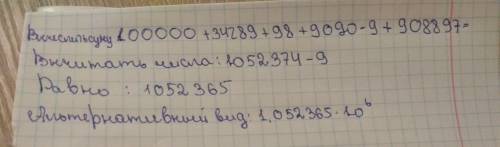 Вычеслить суму 100000 +34289 +98 +9090-9 + 908897=
Вычитать числа: 1052374-9
Равно : 1052365
Альтернативный вид: 1,052365·10⁶